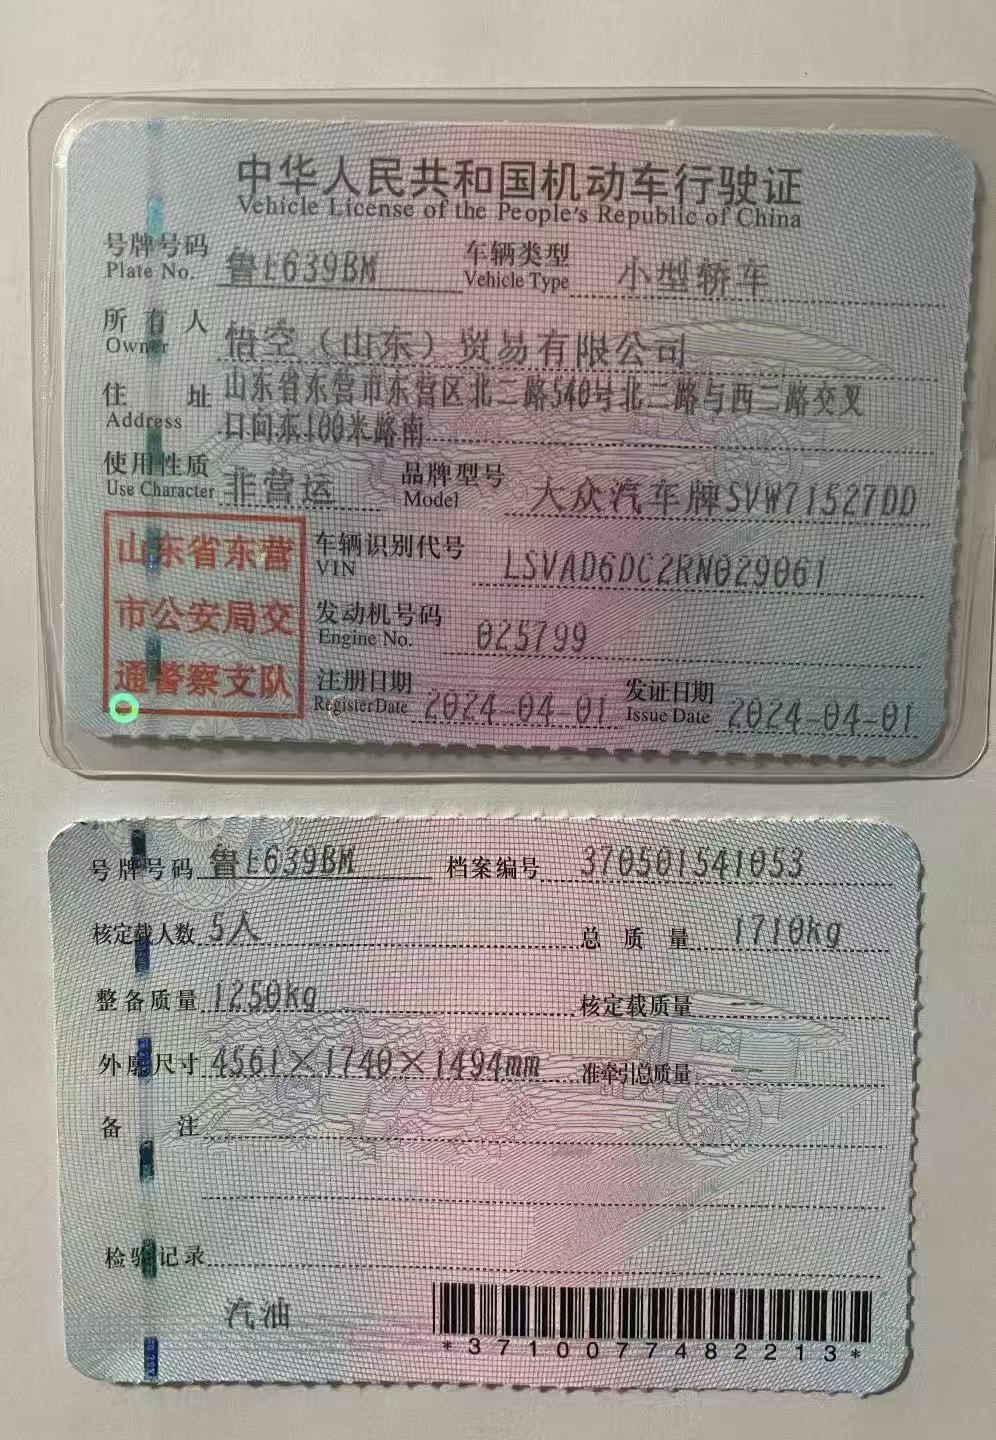 中华人民共和国机动车行驶证
Vehicle License of the People's Republic of China
号牌号码 Plate No. 鲁E639BM 车辆类型 Vehicle Type 小型轿车
所有人 Owner 悟空（山东）贸易有限公司
住址 Address 山东省东营市东营区北二路540号北二路与西二路交叉
口向东100米路南
使用性质 Use Character 非营运 品牌型号 Model 大众汽车牌SVW71527DD
山东省东营
市公安局交
通警察支队
车辆识别代号 VIN LSVAD6DC2RN029061
发动机号码 Engine No. 025799
注册日期 Register Date 2024-04-01 发证日期 Issue Date 2024-04-01
号牌号码 鲁E639BM 档案编号 370501541053
核定载人数 5人 总质量 1710kg
整备质量 1250kg 核定载质量 --
外廓尺寸 4561×1740×1494mm 准牵引总质量 --
备注
检验记录
汽油
*3710077482213*